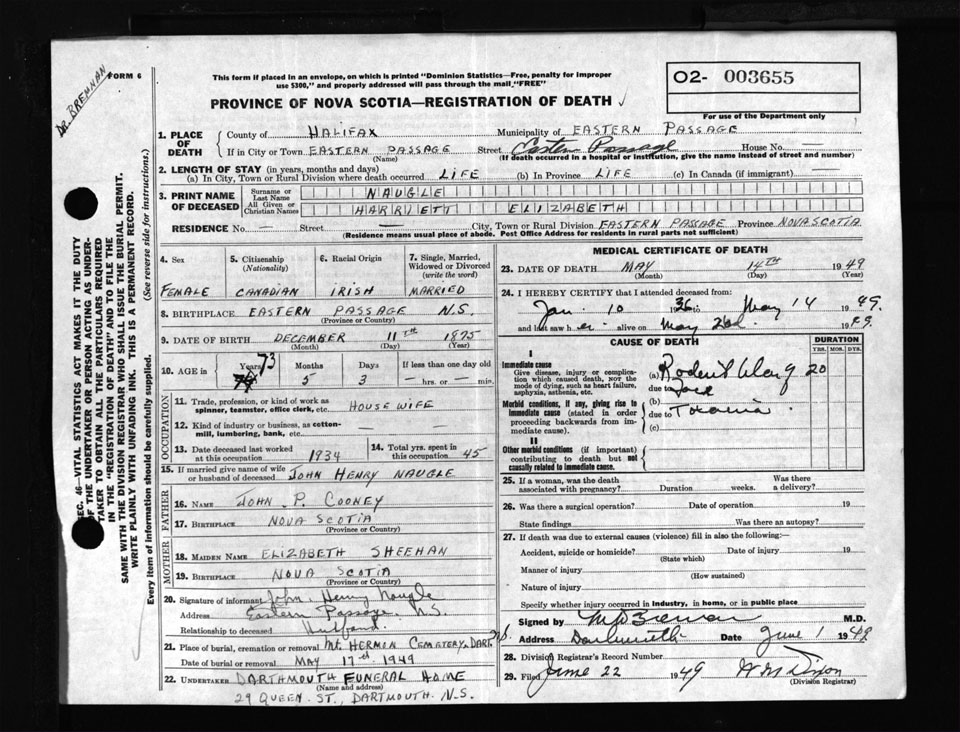 FORM 6
DR. BRENNAN
This form if placed in an envelope, on which is printed "Dominion Statistics—Free, penalty for improper
use $300," and properly addressed will pass through the mail "FREE"
O2- 003655
For use of the Department only
PROVINCE OF NOVA SCOTIA—REGISTRATION OF DEATH
1. PLACE OF DEATH
County of HALIFAX Municipality of EASTERN PASSAGE
If in City or Town EASTERN PASSAGE Street Eastern Passage House No. —
(Name) (If death occurred in a hospital or institution, give the name instead of street and number)
2. LENGTH OF STAY (in years, months and days)
(a) In City, Town or Rural Division where death occurred LIFE (b) In Province LIFE (c) In Canada (if immigrant) —
3. PRINT NAME OF DECEASED
Surname or Last Name NAUGLE
All Given or Christian Names HARRIETT ELIZABETH
RESIDENCE No. — Street — City, Town or Rural Division EASTERN PASSAGE Province NOVA SCOTIA
(Residence means usual place of abode. Post Office Address for residents in rural parts not sufficient)
4. Sex 5. Citizenship (Nationality) 6. Racial Origin 7. Single, Married, Widowed or Divorced (write the word)
FEMALE CANADIAN IRISH MARRIED
8. BIRTHPLACE EASTERN PASSAGE N.S.
(Province or Country)
9. DATE OF BIRTH DECEMBER 11TH 1875
(Month) (Day) (Year)
10. AGE in Years Months Days If less than one day old
73 5 3 — hrs. or — min.
OCCUPATION
11. Trade, profession, or kind of work as spinner, teamster, office clerk, etc. HOUSE WIFE
12. Kind of industry or business, as cotton-mill, lumbering, bank, etc. — —
13. Date deceased last worked at this occupation 1934
14. Total yrs. spent in this occupation 45
15. If married give name of wife or husband of deceased JOHN HENRY NAUGLE
FATHER
16. NAME JOHN P. COONEY
17. BIRTHPLACE NOVA SCOTIA
(Province or Country)
MOTHER
18. MAIDEN NAME ELIZABETH SHEEHAN
19. BIRTHPLACE NOVA SCOTIA
(Province or Country)
20. Signature of informant John Henry Naugle
Address Eastern Passage N.S.
Relationship to deceased Husband.
21. Place of burial, cremation or removal MT. HERMON CEMETERY, DART.
Date of burial or removal MAY 17th 1949
22. UNDERTAKER DARTHMOUTH FUNERAL HOME
(Name and address)
29 QUEEN ST., DARTMOUTH N.S.
MEDICAL CERTIFICATE OF DEATH
23. DATE OF DEATH MAY 14TH 1949
(Month) (Day) (Year)
24. I HEREBY CERTIFY that I attended deceased from:
Jan. 10 1936 to May 14 1949.
and last saw her alive on May 2nd 1949.
CAUSE OF DEATH
DURATION
YRS. MOS. DYS.
I
Immediate cause
Give disease, injury or complication which caused death, NOT the mode of dying, such as heart failure, asphyxia, asthenia, etc.
(a) 20
due to
Morbid conditions, if any, giving rise to immediate cause (stated in order proceeding backwards from immediate cause).
(b)
due to
(c)
II
Other morbid conditions (if important) contributing to death but not causally related to immediate cause.
25. If a woman, was the death associated with pregnancy? Duration weeks. Was there a delivery?
26. Was there a surgical operation? Date of operation 19
State findings Was there an autopsy?
27. If death was due to external causes (violence) fill in also the following:—
Accident, suicide or homicide? Date of injury 19
(State which)
Manner of injury
(How sustained)
Nature of injury
Specify whether injury occurred in industry, in home, or in public place
Signed by M.D.
Address Dartmouth Date June 1 1949
28. Division Registrar's Record Number
29. Filed June 22 1949 W M Dixon
(Division Registrar)
SEC. 46—VITAL STATISTICS ACT MAKES IT THE DUTY
OF THE UNDERTAKER OR PERSON ACTING AS UNDER-
TAKER TO OBTAIN ALL THE PARTICULARS REQUIRED
IN THE "REGISTRATION OF DEATH" AND TO FILE THE
SAME WITH THE DIVISION REGISTRAR WHO SHALL ISSUE THE BURIAL PERMIT.
WRITE PLAINLY WITH UNFADING INK. THIS IS A PERMANENT RECORD.
Every item of information should be carefully supplied. (See reverse side for instructions.)